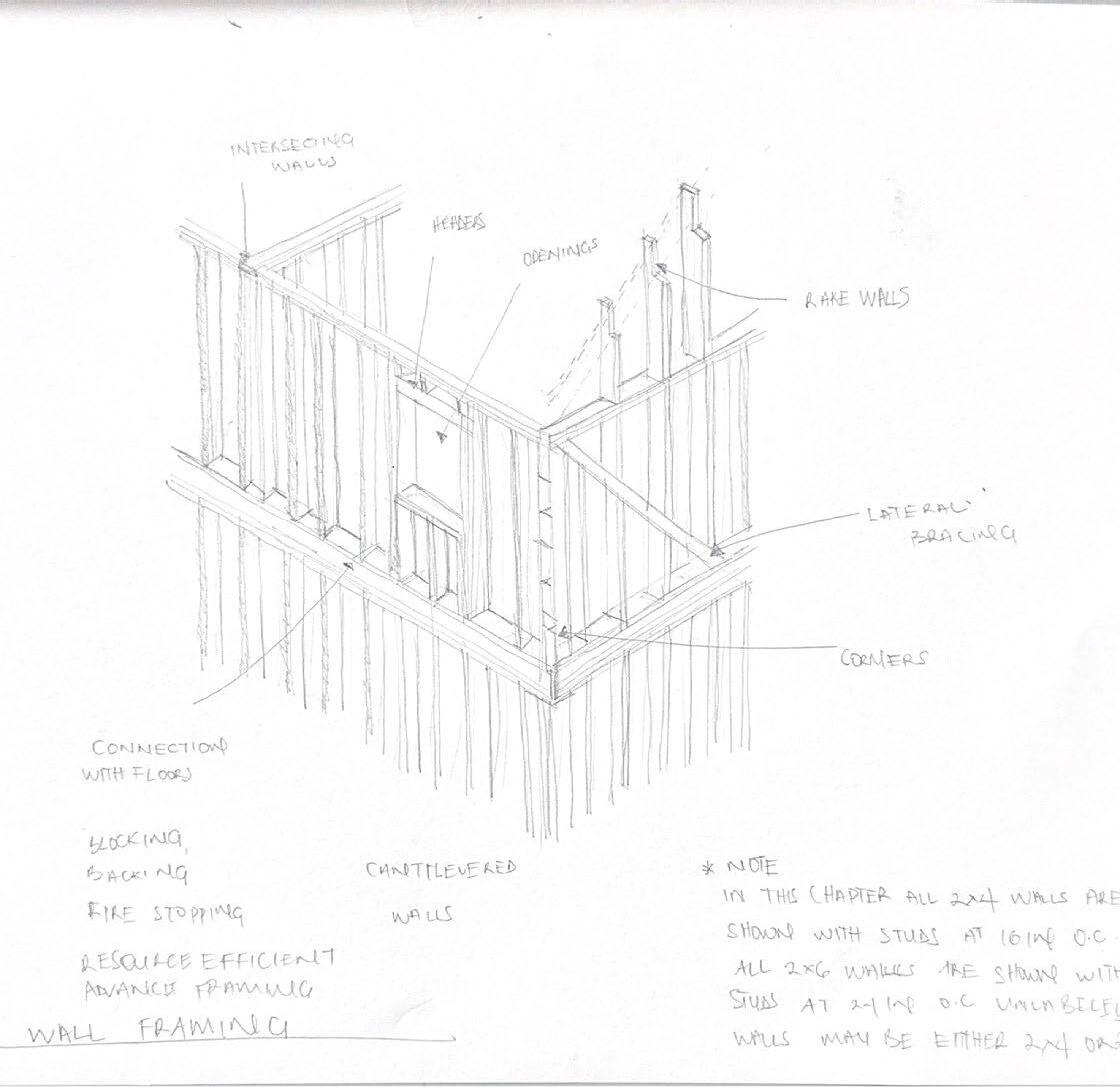 INTERSECTING
WALLS
HEADERS
OPENINGS
RAKE WALLS
LATERAL
BRACING
CORNERS
CONNECTION
WITH FLOORS
BLOCKING,
BACKING
FIRE STOPPING
RESOURCE EFFICIENT
ADVANCE FRAMING
CANTILEVERED
WALLS
* NOTE
IN THIS CHAPTER ALL 2x4 WALLS ARE
SHOWN WITH STUDS AT 16 IN O.C.
ALL 2x6 WALLS ARE SHOWN WITH
STUDS AT 24 IN O.C
WALLS MAY BE EITHER 2x4 OR
WALL FRAMING